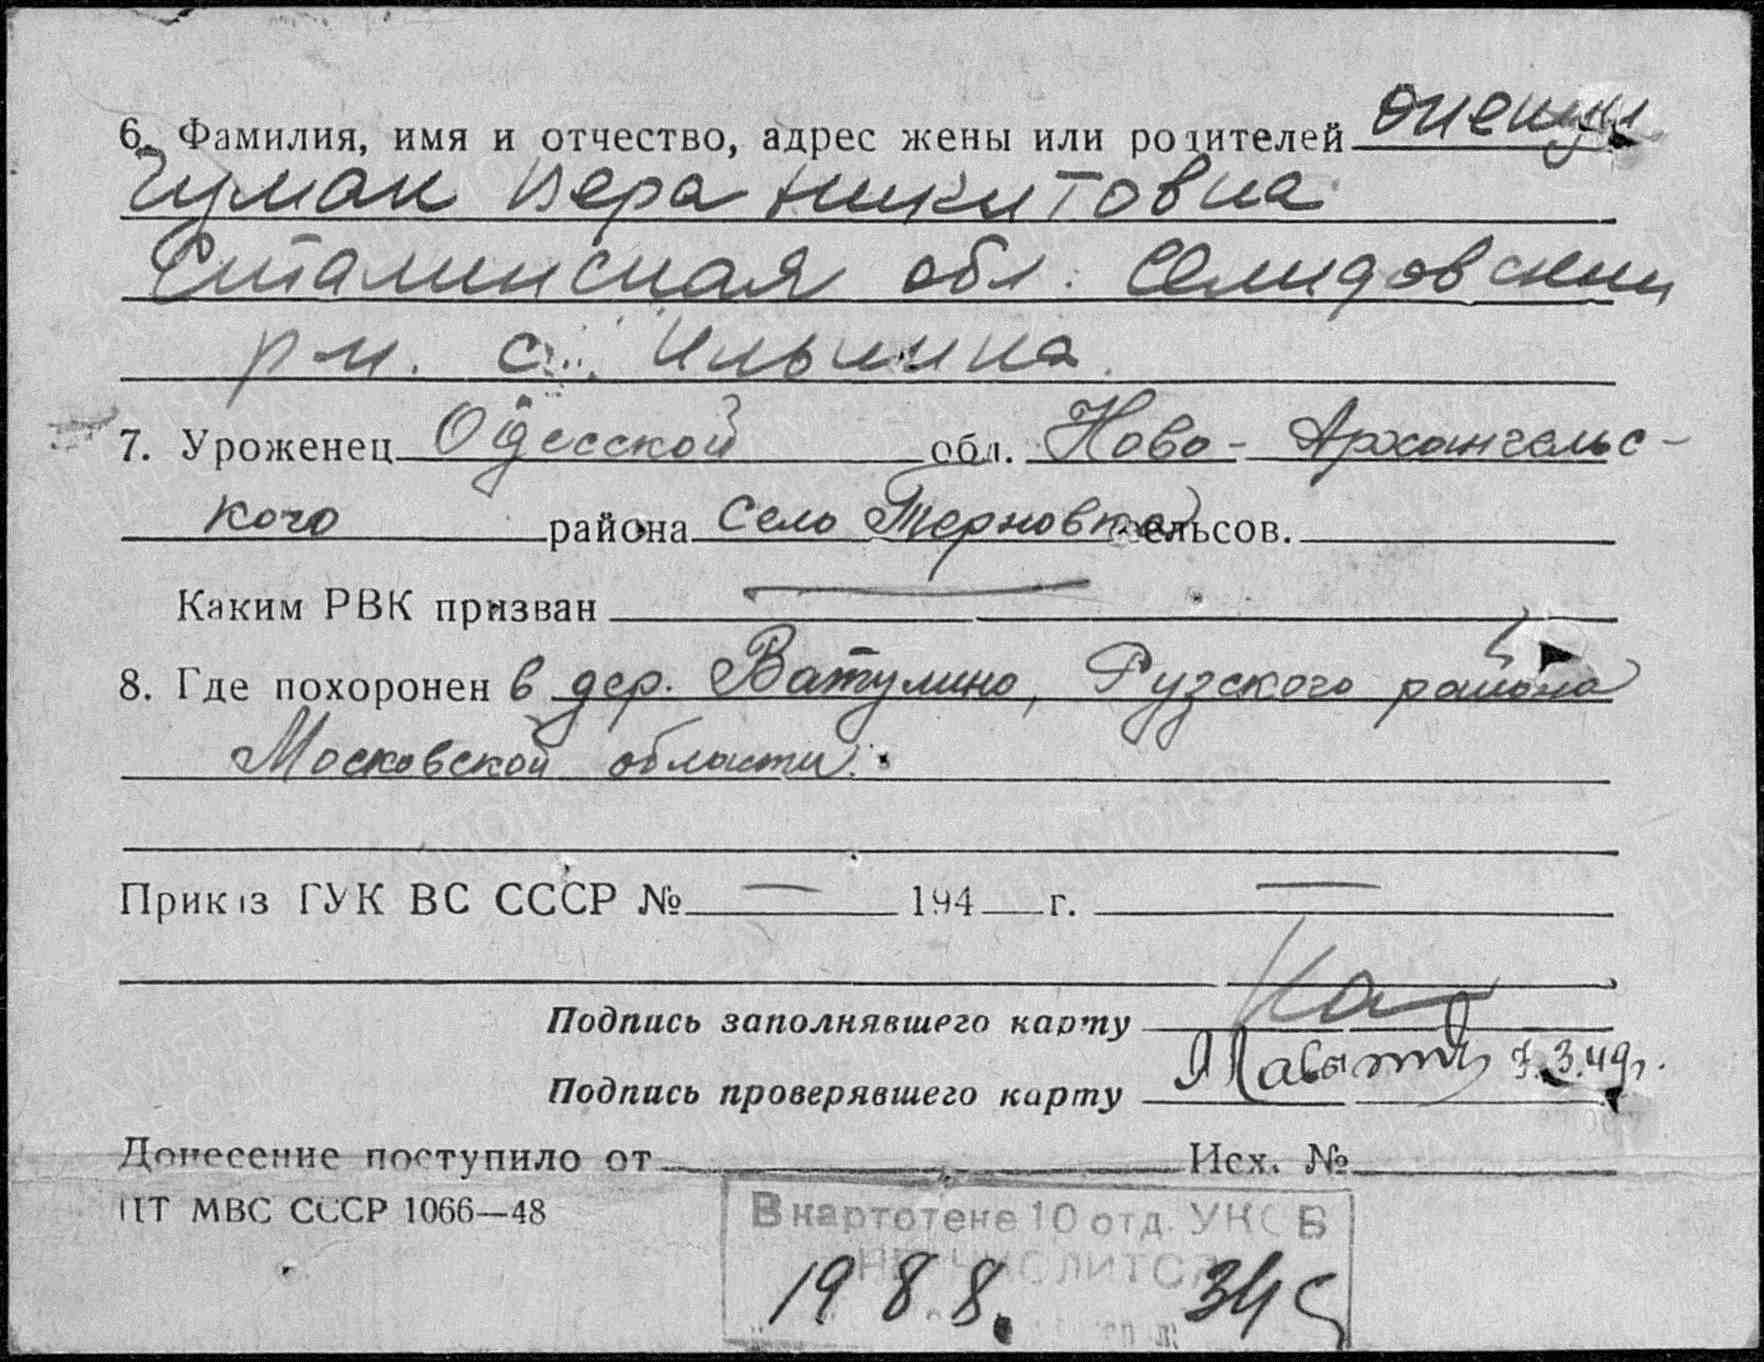 6. Фамилия, имя и отчество, адрес жены или родителей
Чумак Вера Никитовна
Сталинская обл. Селидовский
рн. с. Ильинка
7. Уроженец Одесской обл. Ново-Архангельс-
кого района село Терновка сельсов.
Каким РВК призван —
8. Где похоронен в дер. Ватулино, Рузского района
Московской области.
Приказ ГУК ВС СССР № — 194 г. —
Подпись заполнявшего карту
Подпись проверявшего карту 3.49г.
Донесение поступило от Исх. №
ПТ МВС СССР 1066—48
В картотеке 10 отд. УК СВ
не числится
1988. 34